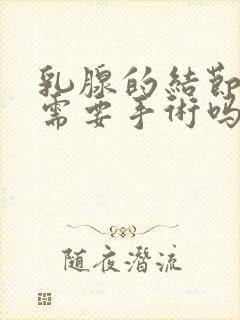 乳腺的結節
需要手術吗
随夜潛流